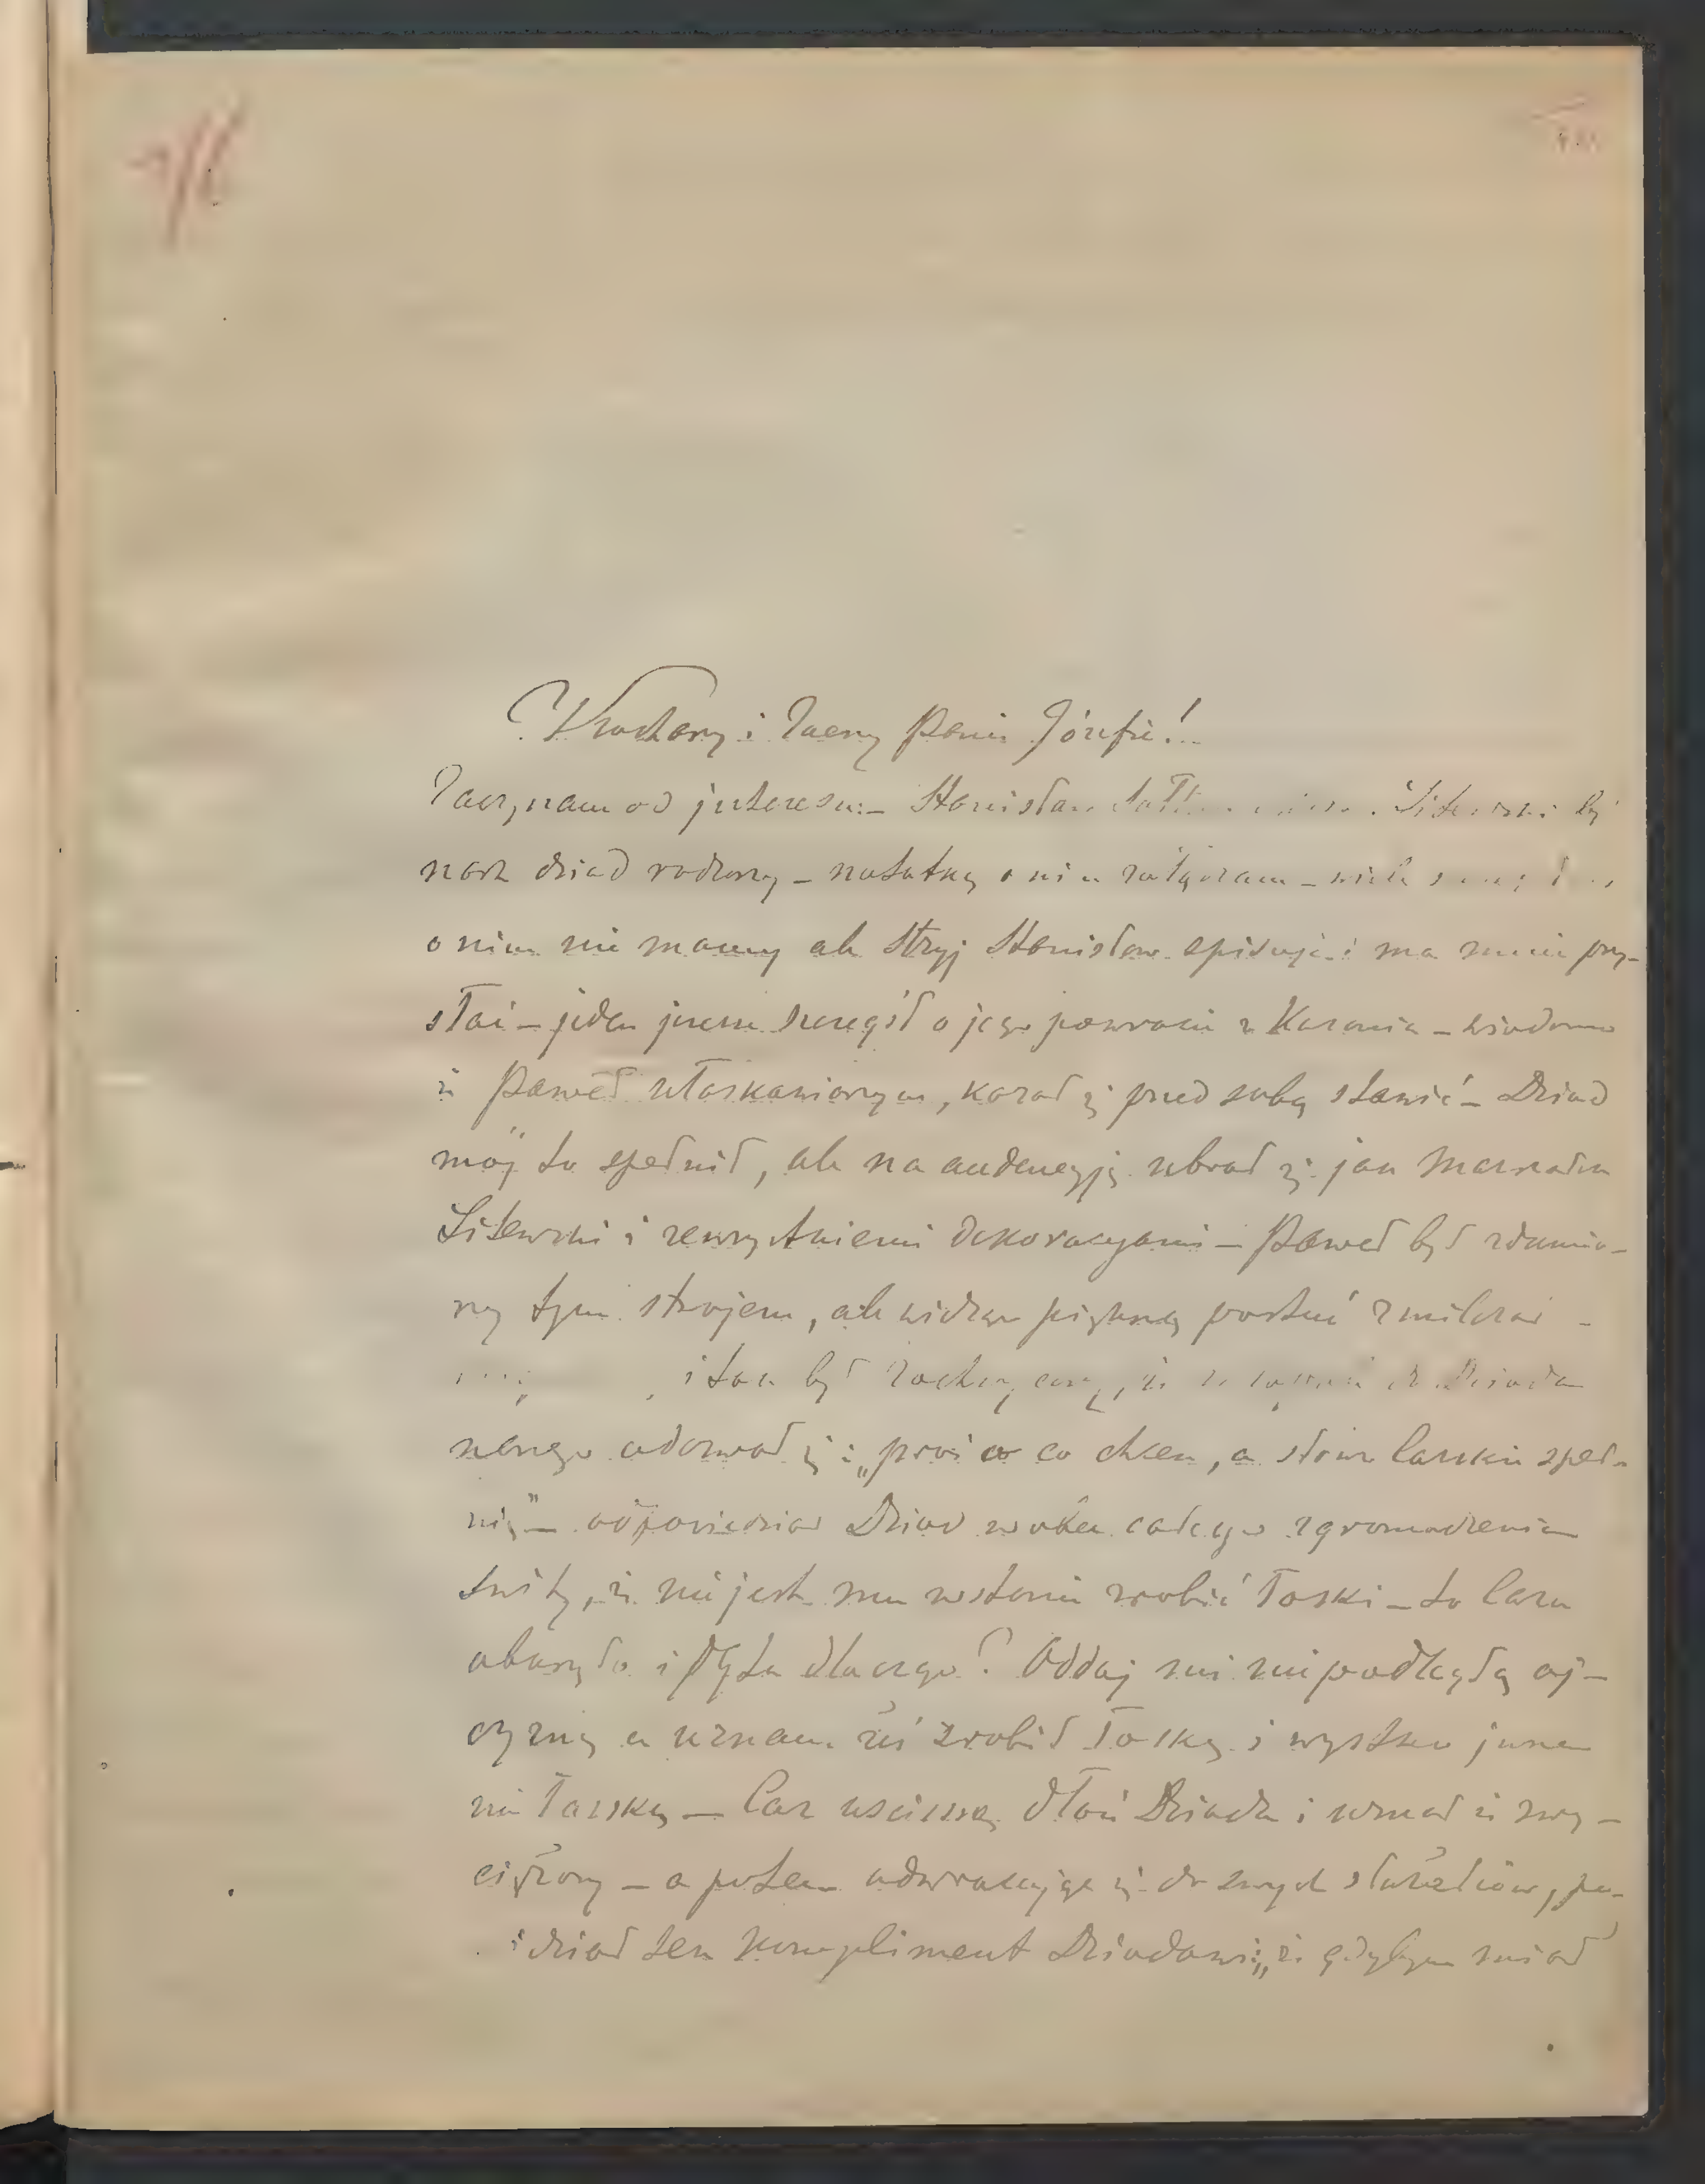 Kochany i Zacny Panie Józefie!
Zaczynam od interesu:— Stanisław Sołtan Litewski był
nasz dziad rodzony — notatkę o nim załączam — wiele
o nim nie mamy ale Stryj Stanisław spisuje i ma mnie przy-
słać — jeden jeszcze szczegół o jego powrocie z Kazania — wiadomo
iż Paweł ułaskawionym, kazał się przed sobą stawić — Dziad
mój to spełnił, ale na audencyję ubrał się jak Marszałek
Litewski i z wszystkiemi dekoracyami — Paweł był zdumio-
ny tym strojem, ale widząc piękną postać zmilczał —
i tak był zachwycony, iż do Dziada
naszego odezwał się: „proś o co chcesz, a słowo Carskie speł-
nię" — odpowiedział Dziad wobec całego zgromadzenia
świty, iż nie jest mu wstanie zrobić łaski — to Cara
oburzyło i pyta dlaczego? Oddaj mi niepodległą oj-
czyznę a uznam żeś zrobił łaskę i wszystko inne
nie łaskę — Car uścisnął dłoń Dziada i uznał iż zwy-
ciężony — a potem odwracając się do swych służalców, po-
wiedział ten kompliment Dziadowi: „iż gdybym miał